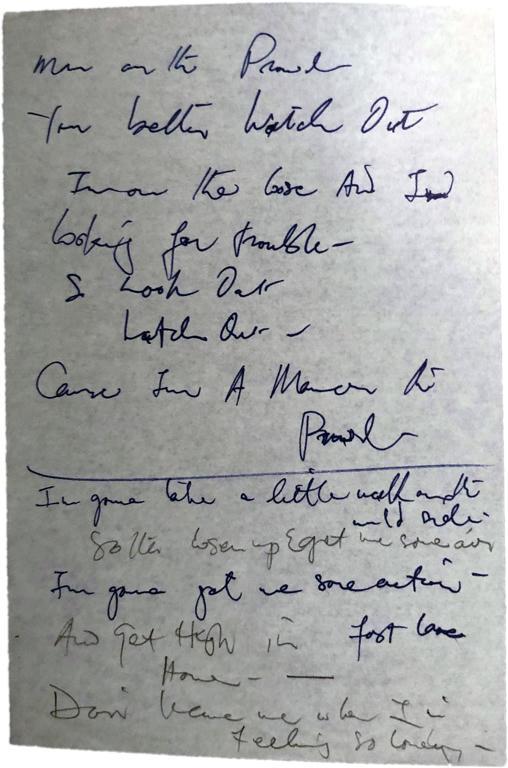 Man on the Prowl
You better Watch Out
I'm on the loose And I'm
looking for trouble -
So Look Out
Watch Out -
Cause I'm A Man on the
Prowl
I'm gonna take a little walk on the
wild side
So lets loosen up & get me some
I'm gonna get me some action -
And Get High in fast lane
Home - —
Don't leave me when I'm
Feeling so lonely -